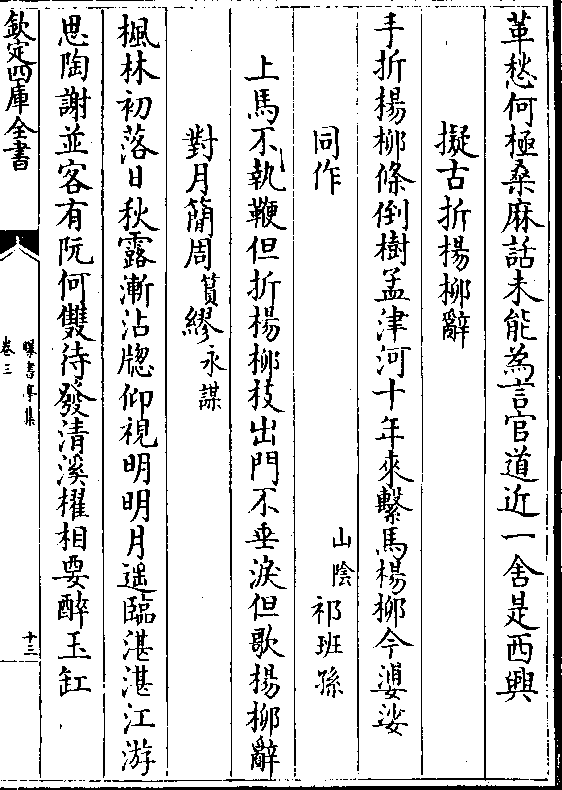 革愁何極桑麻話未能為言官道近一舍是西興
擬古折楊柳辭
手折楊柳條倒樹孟津河十年來繫馬楊柳今婆娑
同作 山陰祁班孫
上馬不執鞭但折楊柳枝出門不垂淚但歌楊柳辭
對月簡周篔繆永謀
楓林初落日秋露漸沾牕仰視明明月遥臨湛湛江游
思陶謝並客有阮何雙待發清溪櫂相要醉玉缸
欽定四庫全書
曝書亭集
卷三
十三